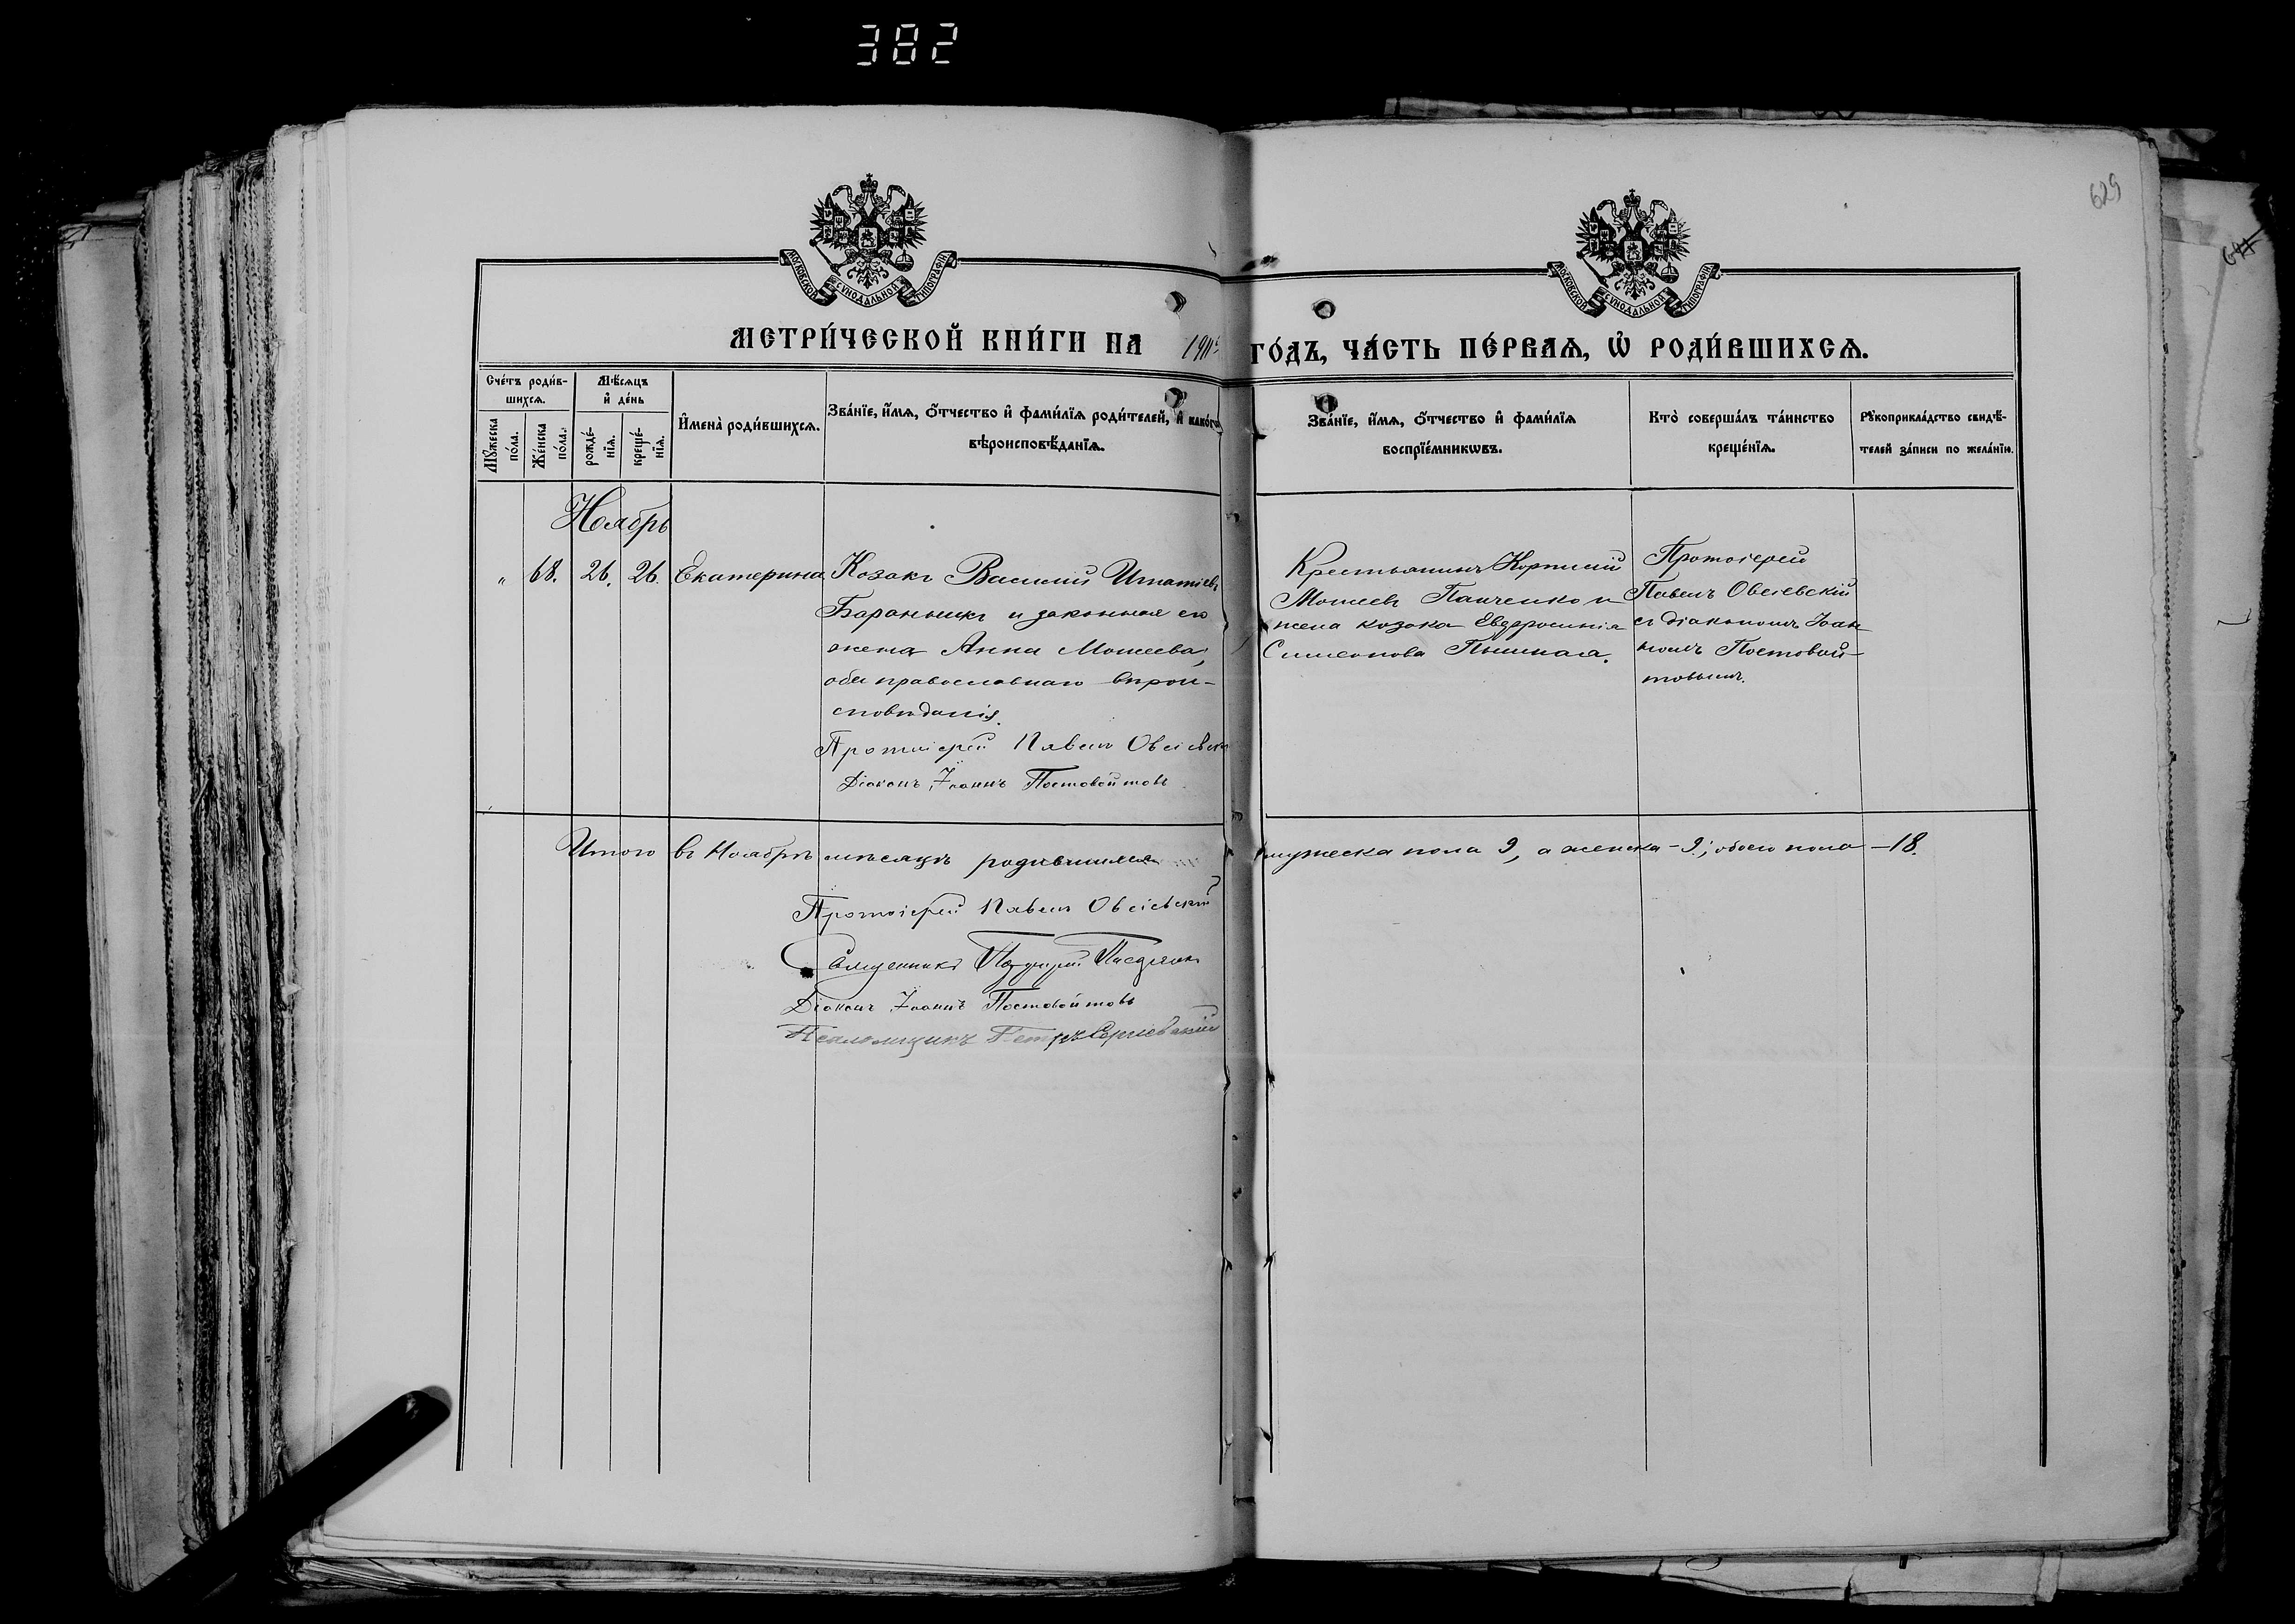 382
629
МОСКОВСКОЙ СУНОДАЛЬНОЙ ТИПОГРАФІИ
МОСКОВСКОЙ СУНОДАЛЬНОЙ ТИПОГРАФІИ
МЕТРИ́ЧЕСКОЙ КНИ́ГИ НА 1911 ГО́ДЪ, ЧА́СТЬ ПЕ́РВАѦ, Ѡ҆ РОДИ́ВШИХСѦ.
Сче́тъ роди́в-
шихсѧ.
Мꙋ́жеска
по́ла.
Же́нска
по́ла.
Мѣ́сѧцъ
и҆ де́нь
рожде́-
нїѧ.
креще́-
нїѧ.
И҆мена̀ роди́вшихсѧ.
Зва́нїе, и҆́мѧ, ѻ҆́тчество и҆ фами́лїѧ роди́телей, и҆ како́гѡ
вѣроисповѣ́данїѧ.
Зва́нїе, и҆́мѧ, ѻ҆́тчество и҆ фами́лїѧ
воспрїе́мникѡвъ.
Кто̀ соверша́лъ та́инство
креще́нїѧ.
Рꙋкоприкла́дство свидѣ́-
телей за́писи по жела́нїю.
Ноябрь
" 68. 26. 26. Екатерина
Козакъ Василій Игнатіевъ
Бараньникъ и законная его
жена Анна Моисеева,
оба православнаго вѣрои-
сповѣданія.
Протоіерей Павелъ Овсіевскій
Діаконъ Іоаннъ Постовойтовъ
Крестьянинъ Корнилій
Моисеевъ Панченко и
жена козака Евдросинія
Симеонова
Протоіерей
Павелъ Овсіевскій
съ діакономъ Іоан-
номъ Постовой-
товымъ.
Итого въ Ноябрѣ мѣсяцѣ родившихся мужеска пола 9, а женска - 9; обоего пола - 18.
Протоіерей Павелъ Овсіевскій
Священникъ
Діаконъ Іоаннъ Постовойтовъ
Псаломщикъ Петръ Сергіевскій